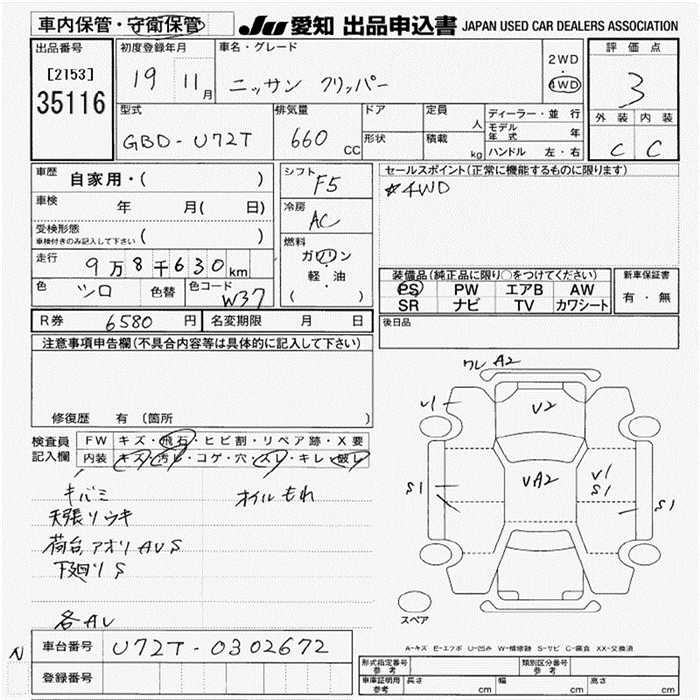 車内保管・守衛保管
JU 愛知 出品申込書 JAPAN USED CAR DEALERS ASSOCIATION
出品番号
[2153]
35116
初度登録年月
19 11月
車名・グレード
ニッサン クリッパー
2WD
・
4WD
評価点
3
外装 内装
C C
型式
GBD-U72T
排気量
660 CC
ドア
形状
定員
人
積載
kg
ディーラー・並行
モデル年式 年
ハンドル 左・右
車歴 自家用・( )
車検 年 月( 日)
受検形態
車検付きのみ記入して下さい ( )
走行 9万8千630km
色 シロ 色替 色コード W37
シフト F5
冷房 AC
燃料
ガソリン
・
軽・油
( )
セールスポイント(正常に機能するものに限ります)
#4WD
装備品(純正品に限り○をつけてください)
PS PW エアB AW
SR ナビ TV カワシート
新車保証書
有・無
R券 6580円 名変期限 月 日
後日品
注意事項申告欄(不具合内容等は具体的に記入して下さい)
修復歴 有 (箇所 )
検査員記入欄
FW キズ・飛石・ヒビ割・リペア跡・X要
内装 キズ・汚レ・コゲ・穴・スレ・キレ・破レ
キバミ オイルもれ
天張リウキ
荷台アオリAUS
下廻りS
各AU
ワレ A2
U1
V2
UA2
U1
S1
S1
S1
スペア
A-キズ E-エクボ U-凹み W-補修跡 S-サビ C-腐食 XX-交換済
N
車台番号 U72T-0302672
登録番号
形式指定番号 参考
類別区分番号 参考
車庫証明用 参考 長さ cm 幅 cm 高さ cm